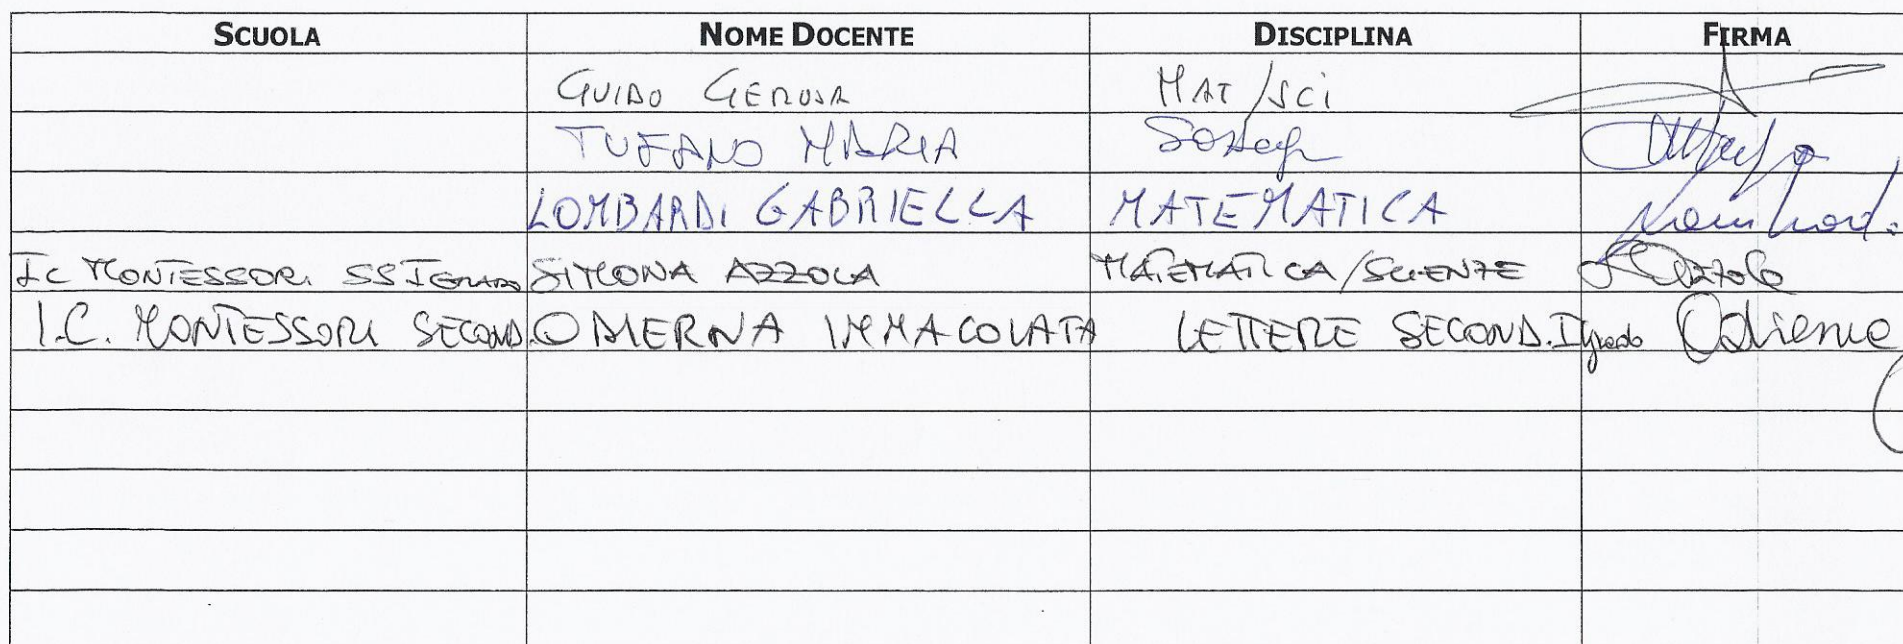 SCUOLA NOME DOCENTE DISCIPLINA FIRMA
GUIDO GEROSA MAT/SCI
TUFANO MARIA
LOMBARDI GABRIELLA MATEMATICA
IC MONTESSORI SS I GRADO SIMONA AZZOLA MATEMATICA/SCIENZE Azzola
I.C. MONTESSORI SECOND. IMMACOLATA LETTERE SECOND. I grado